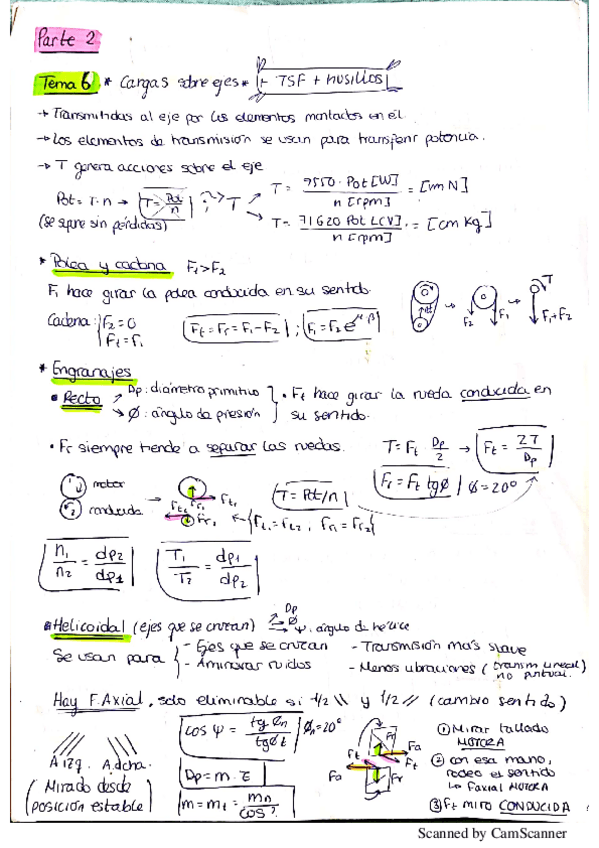 Parte 2
Tema 6 * Cargas sobre ejes * TSF + husillos
→ Transmitidas al eje por los elementos montados en él.
→ Los elementos de transmisión se usan para transferir potencia.
→ T genera acciones sobre el eje
Pot = T·n → T = Pot/n ; T → T = 9550·Pot[W] / n[rpm] = [mN]
(se supone sin pérdidas) → T = 71620 Pot[CV] / n[rpm] = [cm Kg]
* Polea y cadena F1>F2
F1 hace girar la polea conducida en su sentido.
Cadena: F2=0 Ft = Fr = F1-F2 ; F1 = F2 e^μ·β
Ft = F1
F2 F1 T F1+F2
* Engranajes
• Recto → Dp: diámetro primitivo • Ft hace girar la rueda conducida en
→ Ø: ángulo de presión su sentido.
• Fr siempre tiende a separar las ruedas. T = Ft Dp/2 → Ft = 2T/Dp
Fr = Ft tgØ Ø=20°
motor T = Pot/n
conducida Ft1 = Ft2, Fr1 = Fr2
n1/n2 = dp2/dp1 T1/T2 = dp1/dp2
* Helicoidal (ejes que se cruzan) → Dp → Ø → Ψ: ángulo de hélice
Se usan para - Ejes que se cruzan - Transmisión más suave
- Aminorar ruidos - Menos vibraciones (transm lineal no puntual.
Hay F.Axial, solo eliminable si 1/2 \\ y 1/2 // (cambio sentido)
cos Ψ = tg Øn / tg Øt Øn=20°
A izq. A dcha.
(Mirado desde posición estable)
Dp = m·z
m = mt = mn / cos
Ft Fr Fa Ft Fa Fr
① Mirar tallado MOTORA
② con esa mano, rodeo el sentido
↳ Faxial MOTORA
③ Ft miro CONDUCIDA
Scanned by CamScanner